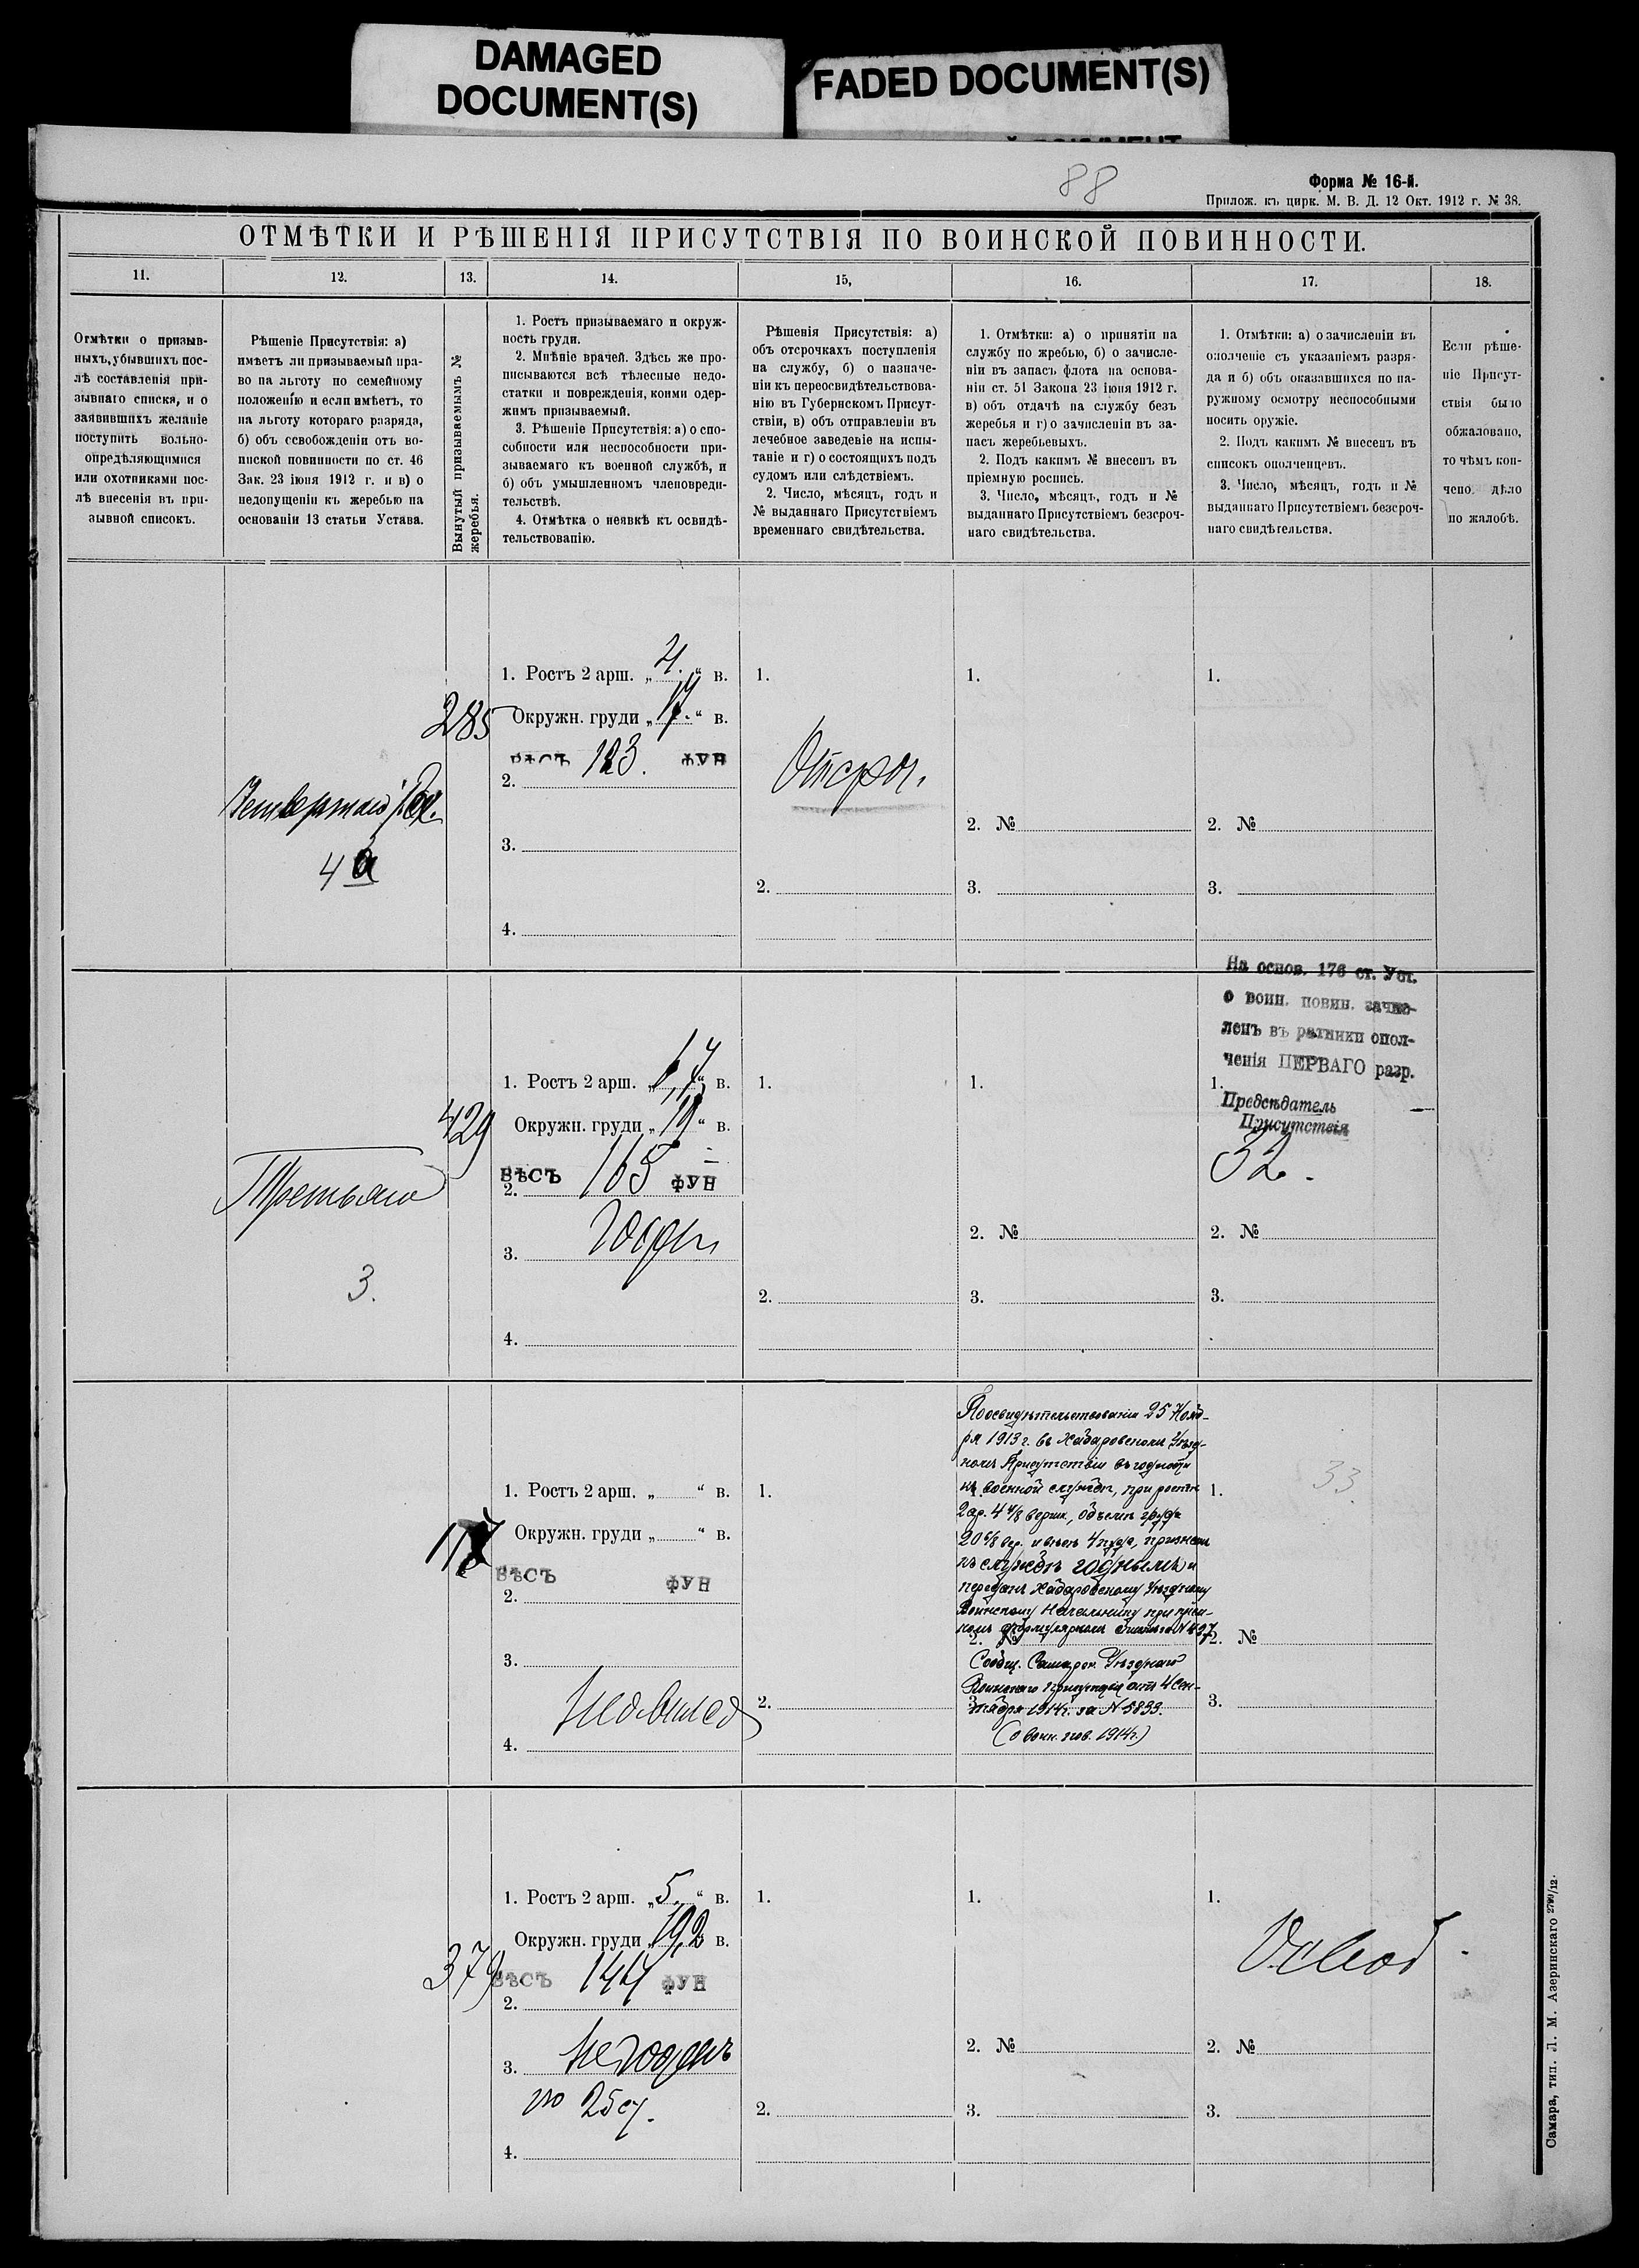 DAMAGED
DOCUMENT(S)
FADED DOCUMENT(S)
88
Форма № 16-й.
Прилож. къ цирк. М. В. Д. 12 Окт. 1912 г. № 38.
ОТМѢТКИ И РѢШЕНІЯ ПРИСУТСТВІЯ ПО ВОИНСКОЙ ПОВИННОСТИ.
11.
12.
13.
14.
15,
16.
17.
18.
Отмѣтки о призыв-
ныхъ, убывшихъ пос-
лѣ составленія при-
зывнаго списка, и о
заявившихъ желаніе
поступить вольно-
опредѣляющимися
или охотниками пос-
лѣ внесенія въ при-
зывной списокъ.
Рѣшеніе Присутствія: а)
имѣетъ ли призываемый пра-
во на льготу по семейному
положенію и если имѣетъ, то
на льготу котораго разряда,
б) объ освобожденіи отъ во-
инской повинности по ст. 46
Зак. 23 іюня 1912 г. и в) о
недопущеніи къ жеребью на
основаніи 13 статьи Устава.
Вынутый призываемымъ №
жеребья.
1. Ростъ призываемаго и окруж-
ность груди.
2. Мнѣніе врачей. Здѣсь же про-
писываются всѣ тѣлесные недо-
статки и поврежденія, коими одер-
жимъ призываемый.
3. Рѣшеніе Присутствія: а) о спо-
собности или неспособности при-
зываемаго къ военной службѣ, и
б) объ умышленномъ членовреди-
тельствѣ.
4. Отмѣтка о неявкѣ къ освидѣ-
тельствованію.
Рѣшенія Присутствія: а)
объ отсрочкахъ поступленія
на службу, б) о назначе-
ніи къ переосвидѣтельствова-
нію въ Губернскомъ Присут-
ствіи, в) объ отправленіи въ
лечебное заведеніе на испы-
таніе и г) о состоящихъ подъ
судомъ или слѣдствіемъ.
2. Число, мѣсяцъ, годъ и
№ выданнаго Присутствіемъ
временнаго свидѣтельства.
1. Отмѣтки: а) о принятіи на
службу по жребью, б) о зачисле-
ніи въ запасъ флота на основа-
ніи ст. 51 Закона 23 іюня 1912 г.
в) объ отдачѣ на службу безъ
жеребья и г) о зачисленіи въ за-
пасъ жеребьевыхъ.
2. Подъ какимъ № внесенъ въ
пріемную роспись.
3. Число, мѣсяцъ, годъ и №
выданнаго Присутствіемъ безсроч-
наго свидѣтельства.
1. Отмѣтки: а) о зачисленіи въ
ополченіе съ указаніемъ разря-
да и б) объ оказавшихся по на-
ружному осмотру неспособными
носить оружіе.
2. Подъ какимъ № внесенъ въ
списокъ ополченцевъ.
3. Число, мѣсяцъ, годъ и №
выданнаго Присутствіемъ безсроч-
наго свидѣтельства.
Если рѣше-
ніе Присут-
ствія было
обжаловано,
то чѣмъ кон-
чено дѣло
по жалобѣ.
285
1. Ростъ 2 арш. „ 4. “ в.
Окружн. груди „ 17. “ в.
вѣсъ 123. фун
2.
3.
4.
Четвертаго
4 а
1.
Отсроч.
2.
1.
2. №
3.
1.
2. №
3.
429
Третьяго
3.
1. Ростъ 2 арш. „ 6,7 “ в.
Окружн. груди „ 19 “ в.
вѣсъ 165 фун
2.
3. годен
4.
1.
2.
1.
2. №
3.
На основ. 176 ст. Уст.
о воин. повин. зачис-
ленъ въ ратники опол-
ченія ПЕРВАГО разр.
1.
Предсѣдатель
Присутствія
32.
2. №
3.
1. Ростъ 2 арш. „ “ в.
Окружн. груди „ “ в.
вѣсъ фун
2.
3.
4.
1.
2.
25 Нояб-
ря 1913 г. въ Хабаровскомъ Уѣзд-
номъ Присутствіи въ годности
къ военной службѣ, при ростѣ
2 ар. 4 4/8 вершк., объемѣ груди
20 6/8 вер. и вѣсѣ 4 пуда, признанъ
къ службѣ годнымъ и
переданъ Хабаровскому Уѣздному
Воинскому Начальнику при пріем-
номъ формулярномъ
2. №
Сообщ. Самарск. Уѣзднаго
Воинскаго Присутствія отъ 4 Сен-
3.
тября 1914 г. за № 5833.
(о воин. пов. 1914 г.)
1.
33
2. №
3.
379
1. Ростъ 2 арш. „ 5. “ в.
Окружн. груди „ 19,2 в.
вѣсъ 144 фун
2.
3. Негоденъ
по 25 ст.
4.
1.
2.
1.
2. №
3.
1.
2. №
3.
Самара, тип. Л. М. Азеринскаго